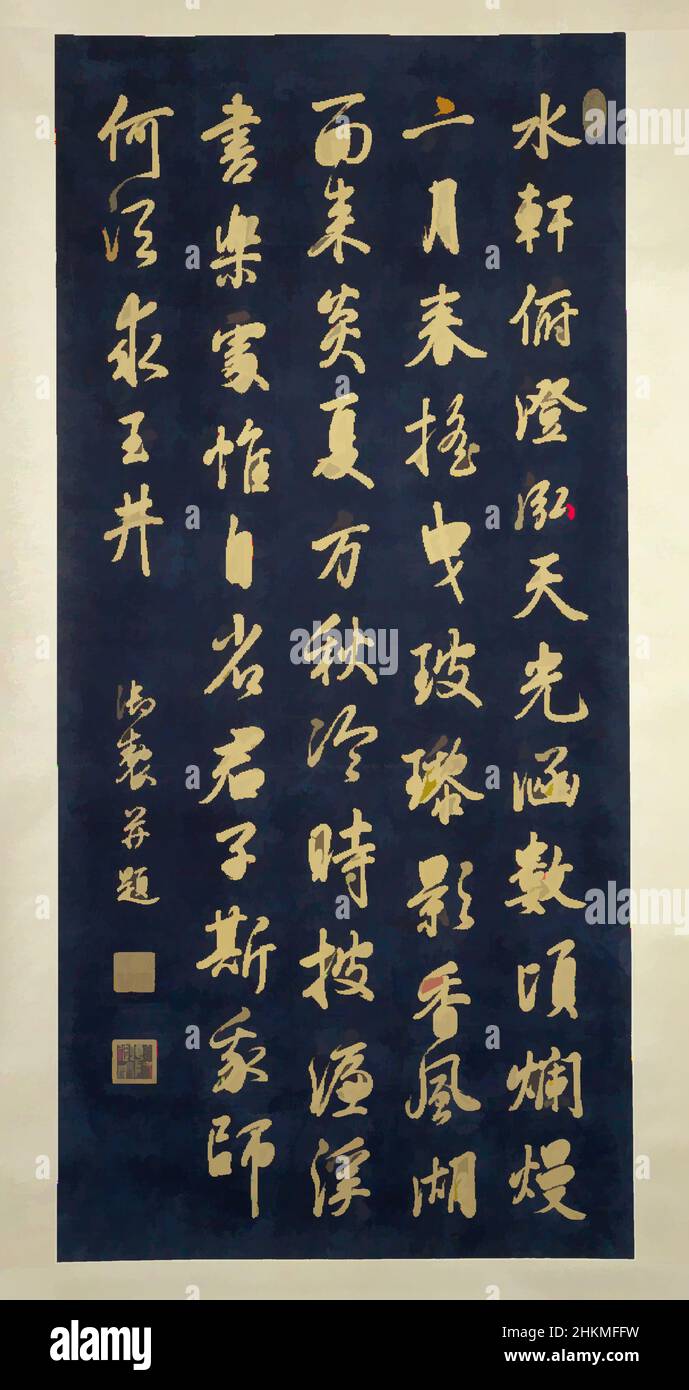 水軒俯澄泓天光涵數頃爛熳
六月春搖曳玻瓈影香風湖
面來炎夏方秋冷時披濂溪
書樂處惟自省君子斯我師
何須求玉井
御製并題
alamy
Image ID: 2HKMFFW
www.alamy.com